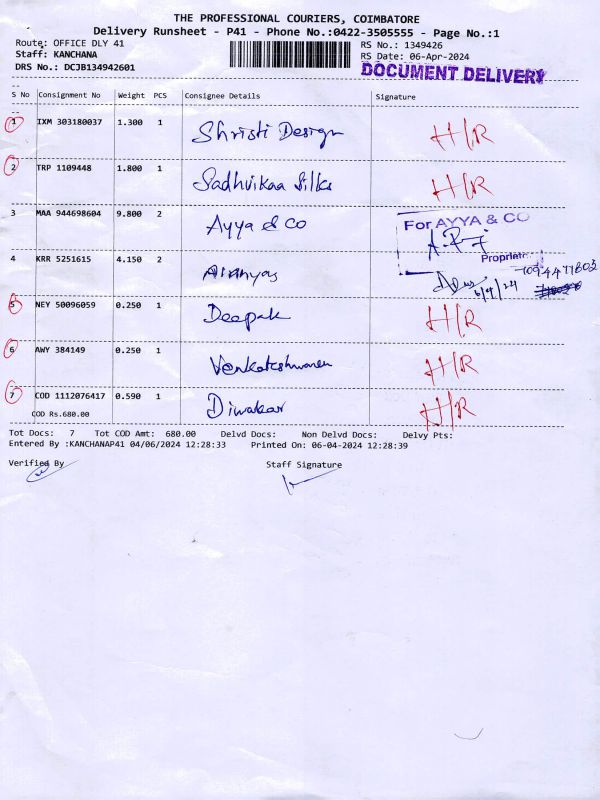 THE PROFESSIONAL COURIERS, COIMBATORE
Delivery Runsheet - P41 - Phone No.:0422-3505555 - Page No.:1
Route: OFFICE DLY 41
RS No.: 1349426
Staff: KANCHANA
RS Date: 06-Apr-2024
DRS No.: DCJB134942601
DOCUMENT DELIVERY
S No Consignment No Weight PCS Consignee Details Signature
1 IXM 303180037 1.300 1 Shristi Design H/R
2 TRP 1109448 1.800 1 Sadhvikaa Silks H/R
3 MAA 944698604 9.800 2 Ayya & Co For AYYA & CO
Proprietor
4 KRR 5251615 4.150 2 6/4/24
5 NEY 50096059 0.250 1 Deepak H/R
6 AWY 384149 0.250 1 Venkateshwaran H/R
7 COD 1112076417 0.590 1 Diwakar H/R
COD Rs.680.00
Tot Docs: 7 Tot COD Amt: 680.00 Delvd Docs: Non Delvd Docs: Delvy Pts:
Entered By :KANCHANAP41 04/06/2024 12:28:33 Printed On: 06-04-2024 12:28:39
Verified By Staff Signature